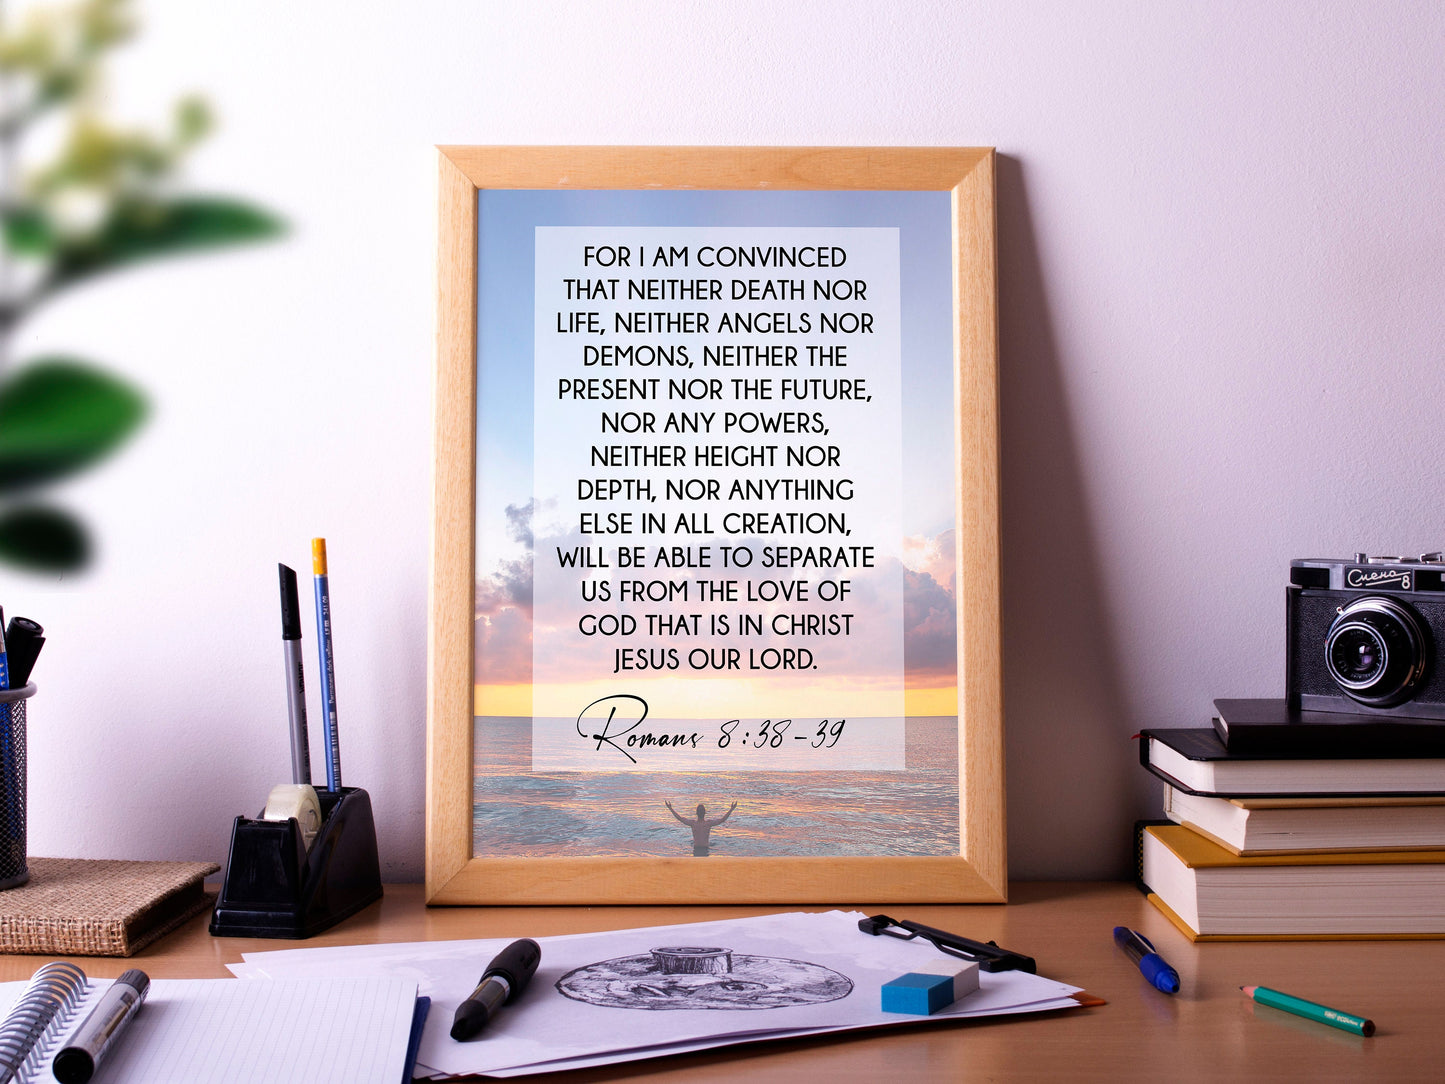 FOR I AM CONVINCED
THAT NEITHER DEATH NOR
LIFE, NEITHER ANGELS NOR
DEMONS, NEITHER THE
PRESENT NOR THE FUTURE,
NOR ANY POWERS,
NEITHER HEIGHT NOR
DEPTH, NOR ANYTHING
ELSE IN ALL CREATION,
WILL BE ABLE TO SEPARATE
US FROM THE LOVE OF
GOD THAT IS IN CHRIST
JESUS OUR LORD.
Romans 8:38-39
Смена 8